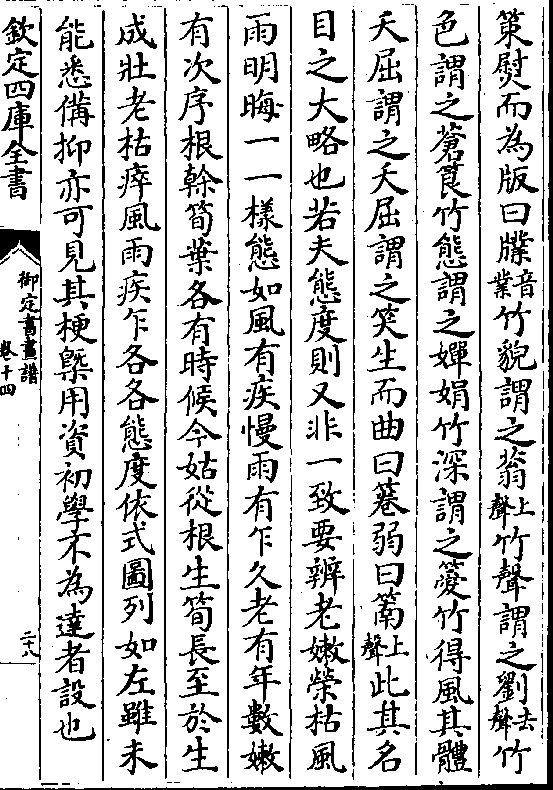 䇿熨而為版曰牒音業竹貌謂之蓊上聲竹聲謂之劉去聲竹
色謂之蒼筤竹態謂之嬋娟竹深謂之䉜竹得風其體
夭屈謂之夭屈謂之笑生而曲曰䈶弱曰䈞上聲此其名
目之大略也若夫態度則又非一致要辨老嫩榮枯風
雨明晦一一樣態如風有疾慢雨有乍久老有年數嫩
有次序根榦筍葉各有時候今姑從根生筍長至於生
成壯老枯瘁風雨疾乍各各態度依式圖列如左雖未
能悉備抑亦可見其梗槩用資初學不為達者設也
欽定四庫全書
御定書畫譜
卷十四
二十八